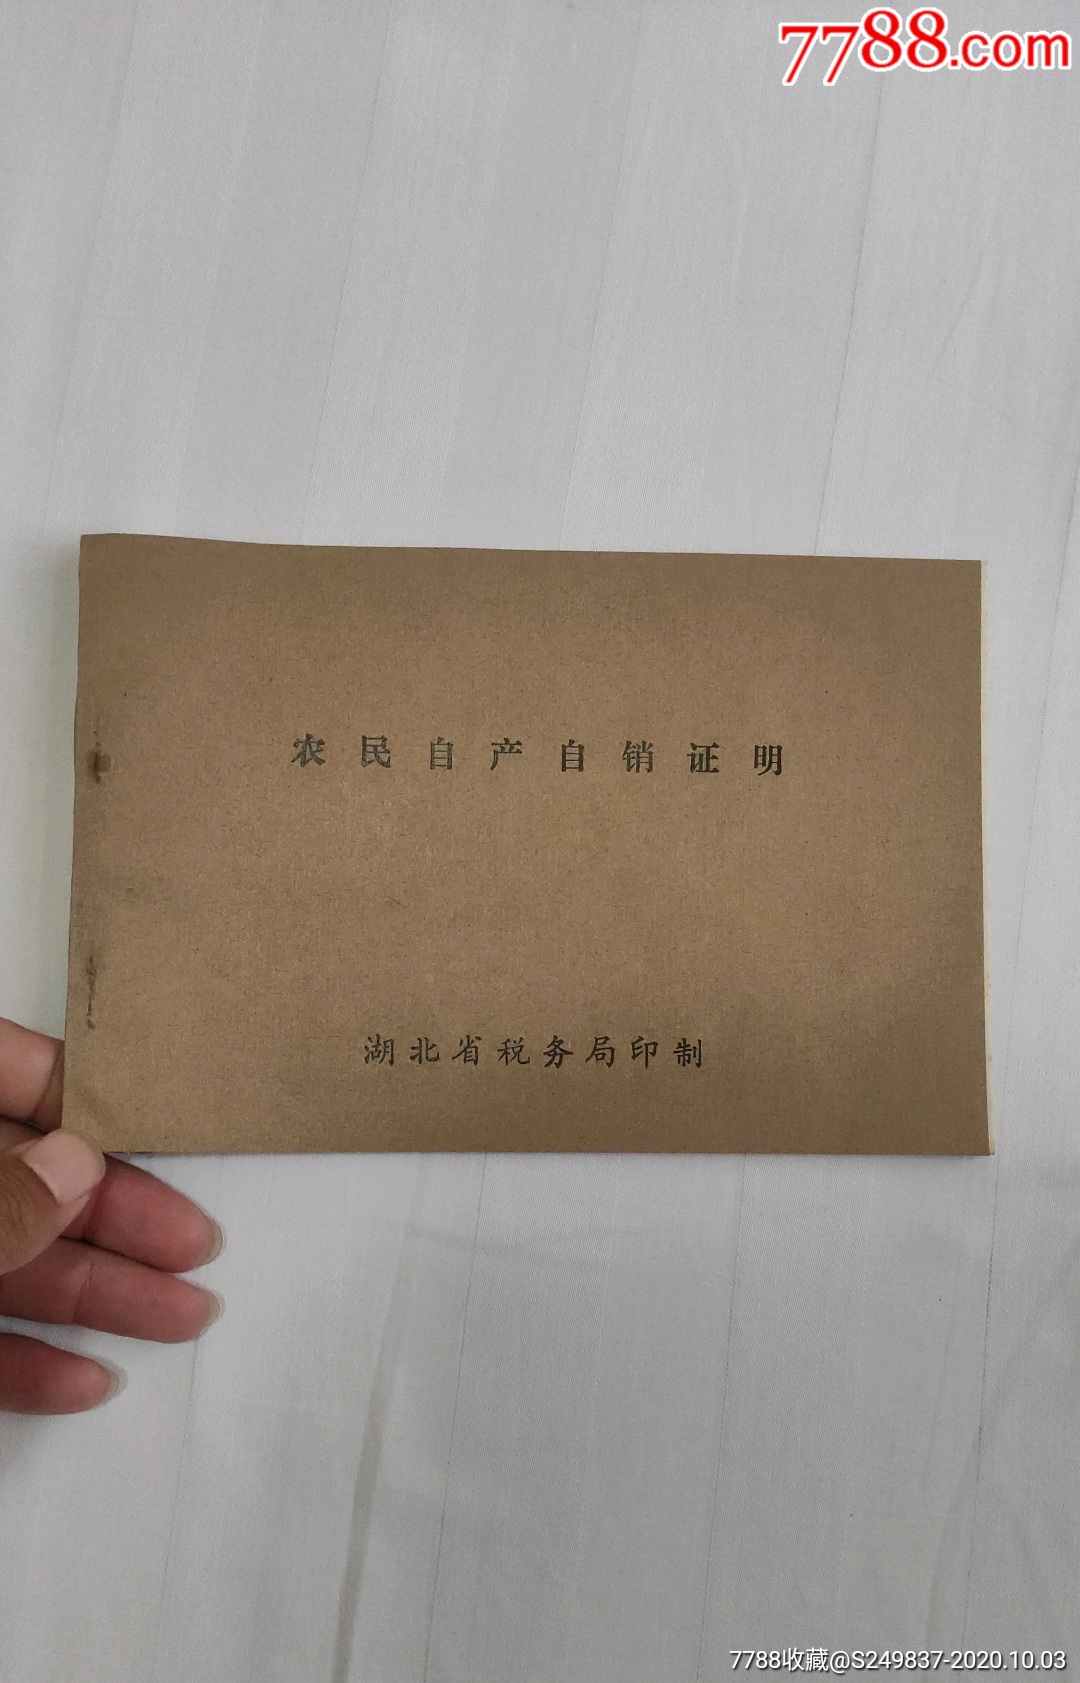 7788.com
农民自产自销证明
湖北省税务局印制
7788收藏@S249837-2020.10.03